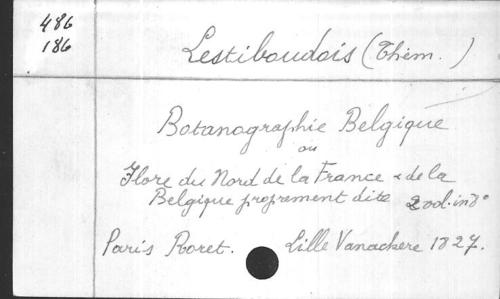 486
186
Lestiboudois (Thém. )
Botanographie Belgique
ou
Flore du Nord de la France & de la
Belgique proprement dite 2 vol. in 8°
Paris Roret. Lille Vanackere 1827.